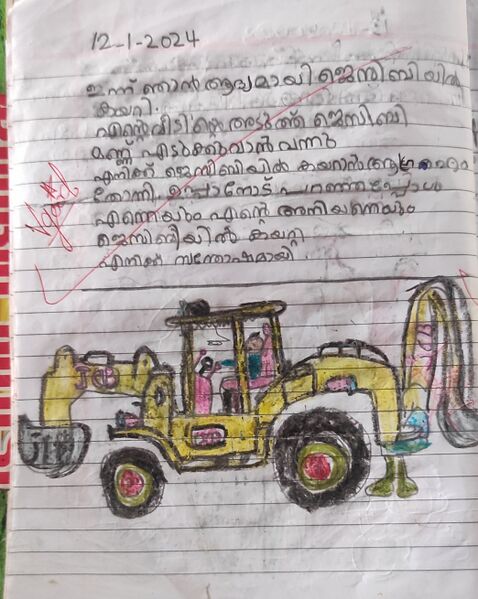 12-1-2024
ഇന്ന് ഞാൻ ആദ്യമായി ജെസിബിയിൽ
കയറി.
എന്റെ വീടിന്റെ അടുത്ത് ജെസിബി
മണ്ണ് എടുക്കുവാൻ വന്നു
എനിക്ക് ജെസിബിയിൽ കയറാൻ ആഗ്രഹം
തോന്നി. ഉപ്പാനോട് പറഞ്ഞപ്പോൾ
എന്നെയും എന്റെ അനിയനെയും
ജെസിബിയിൽ കയറ്റി
എനിക്ക് സന്തോഷമായി.
good
JCB